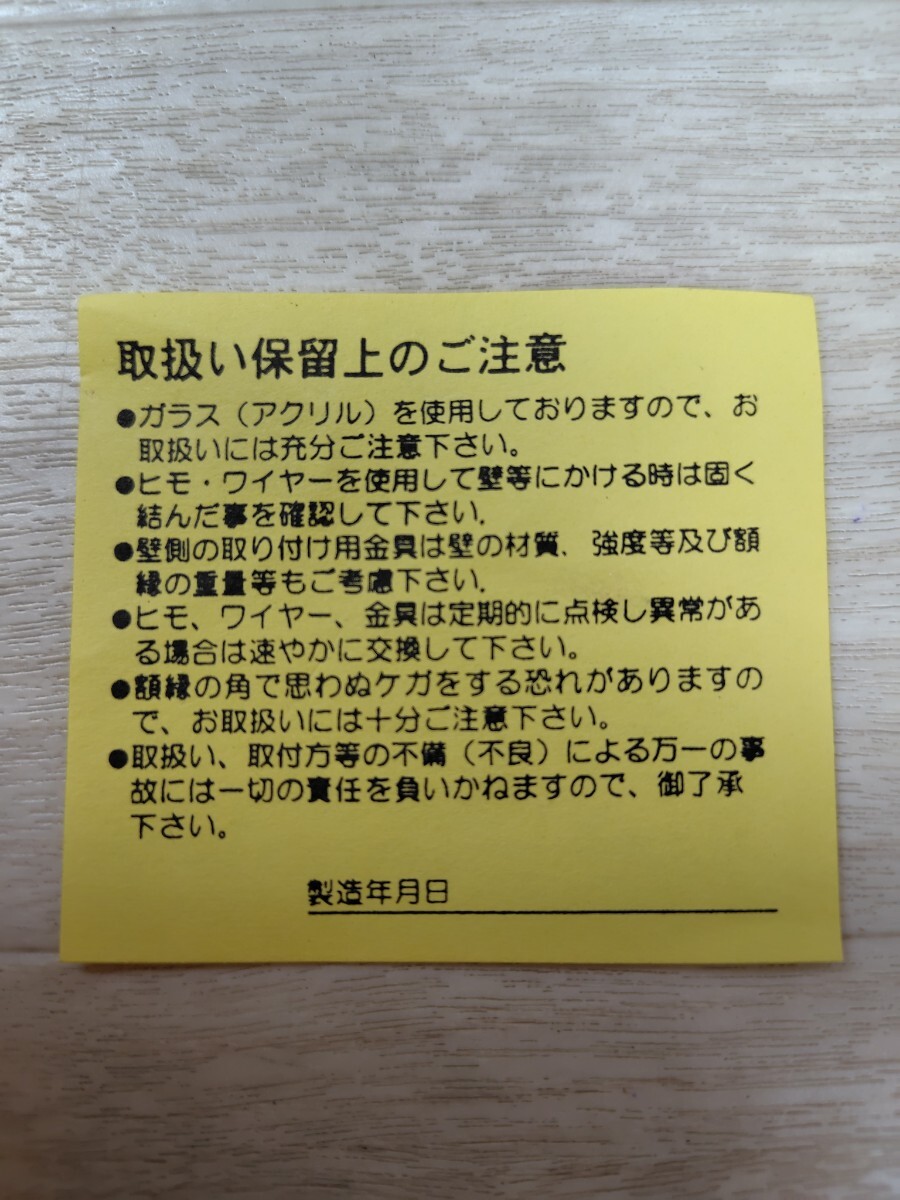 取扱い保留上のご注意
●ガラス（アクリル）を使用しておりますので、お
取扱いには充分ご注意下さい。
●ヒモ・ワイヤーを使用して壁等にかける時は固く
結んだ事を確認して下さい.
●壁側の取り付け用金具は壁の材質、強度等及び額
縁の重量等もご考慮下さい.
●ヒモ、ワイヤー、金具は定期的に点検し異常があ
る場合は速やかに交換して下さい。
●額縁の角で思わぬケガをする恐れがありますの
で、お取扱いには十分ご注意下さい。
●取扱い、取付方等の不備（不良）による万一の事
故には一切の責任を負いかねますので、御了承
下さい。
製造年月日